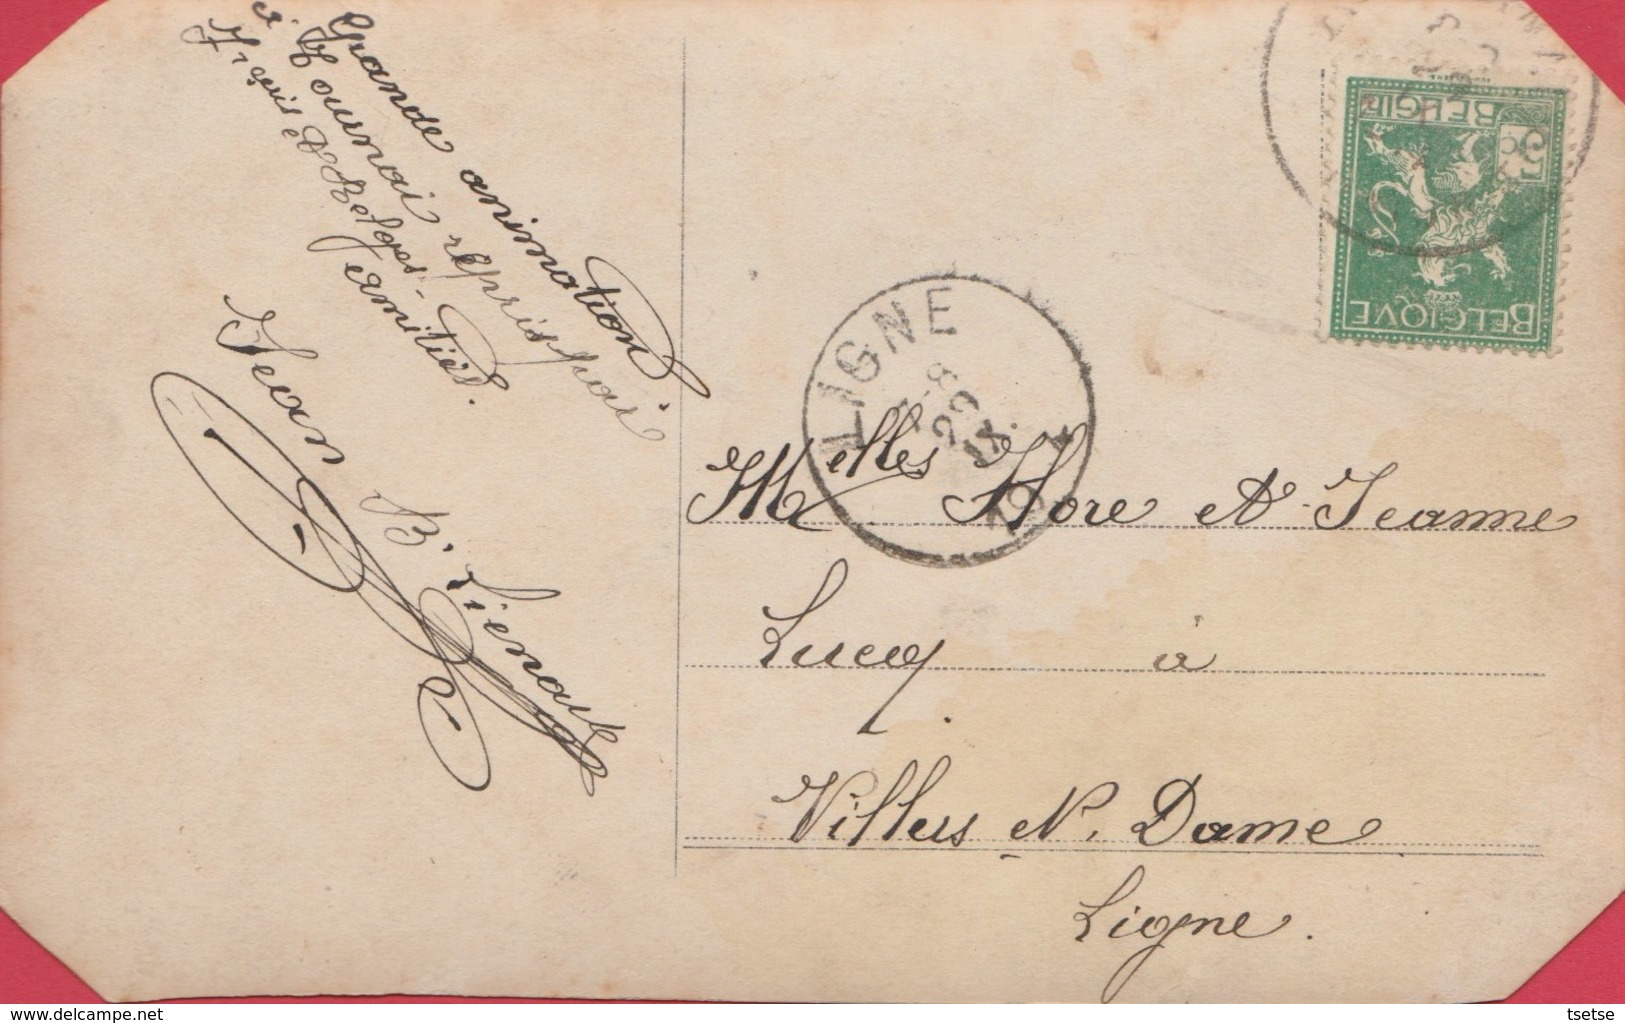 Grande animation
à Tournai repris par
Frçais et Belges.
amitiés.
Jean B. Lienart
BELGIQUE
BELGIË
5
LIGNE
Melles Flore et Jeanne
Lucq à
Villers N. Dame
Ligne.
delcampe.net
tsetse